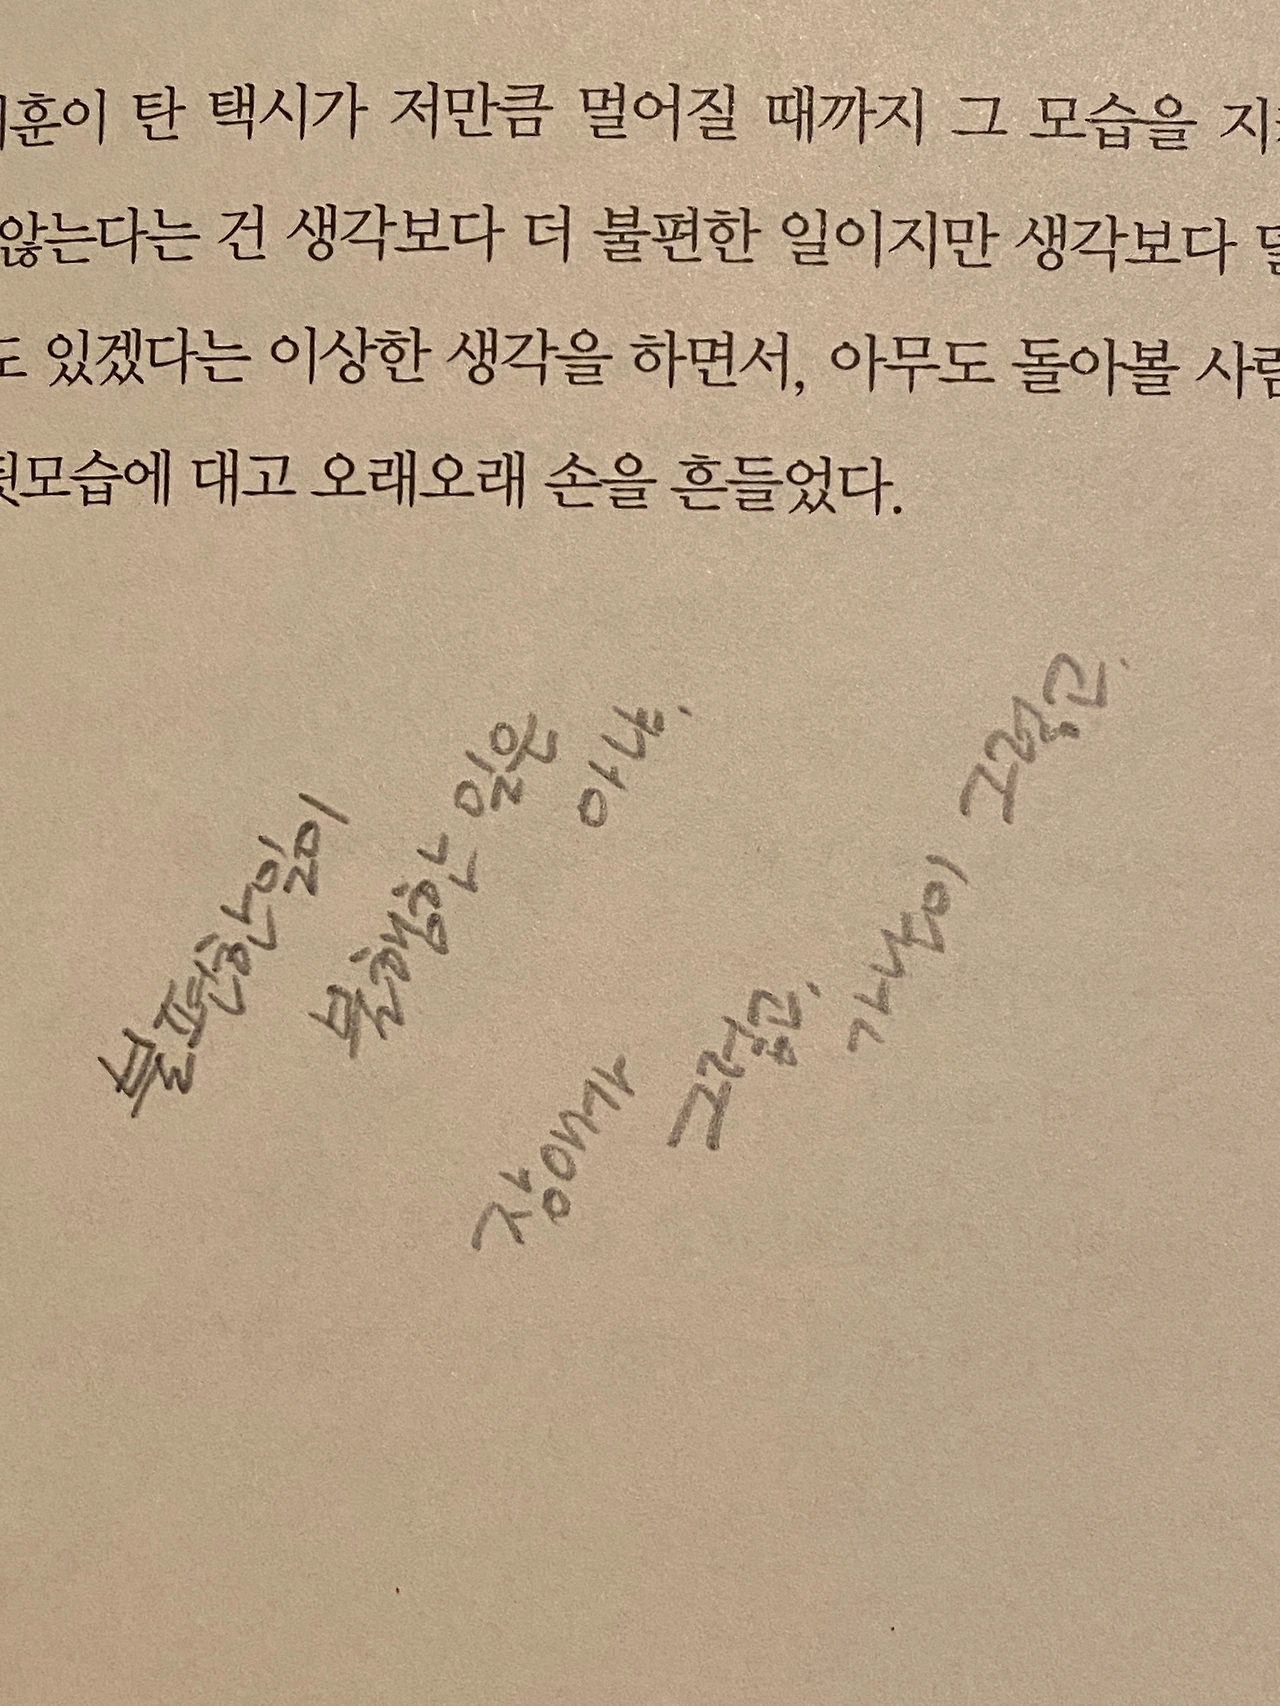 훈이 탄 택시가 저만큼 멀어질 때까지 그 모습을
않는다는 건 생각보다 더 불편한 일이지만 생각보다
도 있겠다는 이상한 생각을 하면서, 아무도 돌아볼 사람
뒷모습에 대고 오래오래 손을 흔들었다.
불편한 일이
불행한 일은
아냐.
장애가 그렇고.
가난이 그렇고.